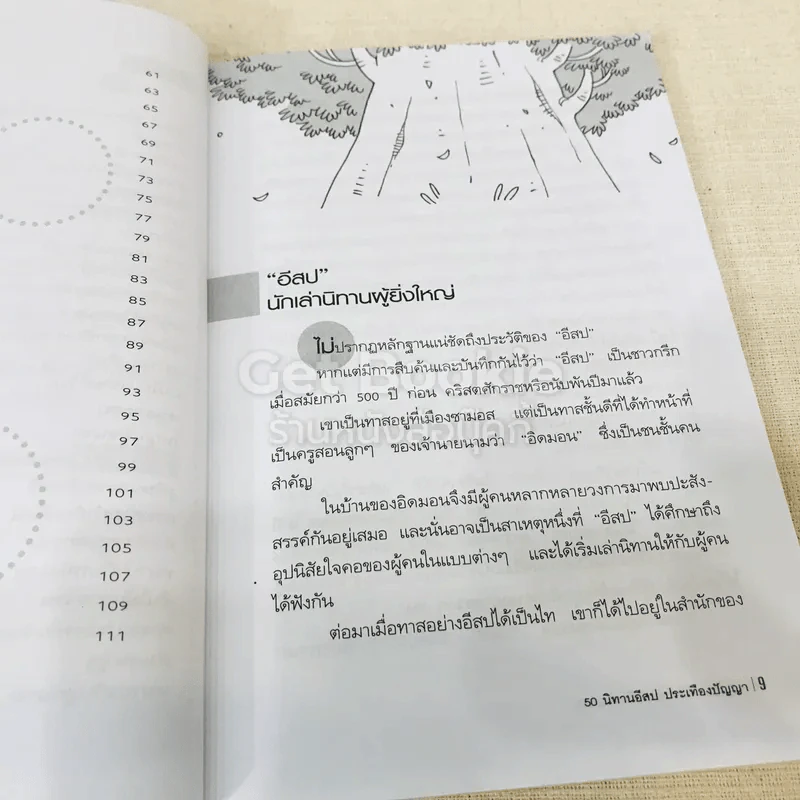 61
63
65
67
69
71
73
75
77
79
81
83
85
87
89
91
93
95
97
99
101
103
105
107
109
111
“อีสป”
นักเล่านิทานผู้ยิ่งใหญ่
ไม่ปรากฏหลักฐานแน่ชัดถึงประวัติของ “อีสป”
หากแต่มีการสืบค้นและบันทึกกันไว้ว่า “อีสป” เป็นชาวกรีก
เมื่อสมัยกว่า 500 ปี ก่อน คริสตศักราชหรือนับพันปีมาแล้ว
เขาเป็นทาสอยู่ที่เมืองซามอส แต่เป็นทาสชั้นดีที่ได้ทำหน้าที่
เป็นครูสอนลูกๆ ของเจ้านายนามว่า “อิดมอน” ซึ่งเป็นชนชั้นคน
สำคัญ
ในบ้านของอิดมอนจึงมีผู้คนหลากหลายวงการมาพบปะสัง-
สรรค์กันอยู่เสมอ และนั่นอาจเป็นสาเหตุหนึ่งที่ “อีสป” ได้ศึกษาถึง
อุปนิสัยใจคอของผู้คนในแบบต่างๆ และได้เริ่มเล่านิทานให้กับผู้คน
ได้ฟังกัน
ต่อมาเมื่อทาสอย่างอีสปได้เป็นไท เขาก็ได้ไปอยู่ในสำนักของ
50 นิทานอีสป ประเทืองปัญญา | 9